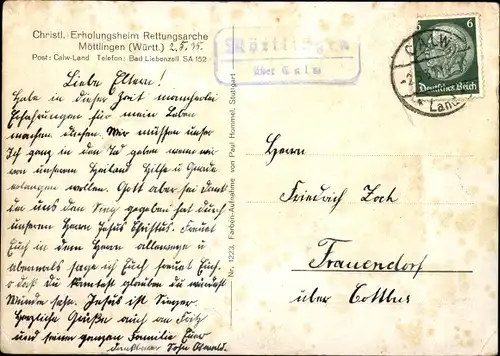 Christl. Erholungsheim Rettungsarche
Möttlingen (Württ.) 2.5.35.
Post: Calw-Land Telefon: Bad Liebenzell SA 152
Liebe Eltern!
Habe in dieser Zeit mancherlei
Erfahrungen für mein Leben
machen dürfen. Wir müssen unser
Ich ganz in den Tod geben wenn wir
von unserem Heiland Hilfe u Gnade
erlangen wollen. Gott aber sei Dank
der uns den Sieg gegeben hat durch
unseren Herrn Jesus Christus. Freuet
Euch in dem Herrn allewege u
abermals sage ich Euch freuet Euch.
o daß du glauben du würdest
Wunder sehn. Jesus ist Sieger.
Herzliche Grüße auch an Fritz
und seine ganze Familie Euer
dankbarer Sohn Oswald.
Nr. 1223. Farben-Aufnahme von Paul Hommel, Stuttgart
Möttlingen
über Calw
CALW
Land
5 6
Deutsches Reich
Herrn
Friedrich Zoch
Frauendorf
über Cottbus